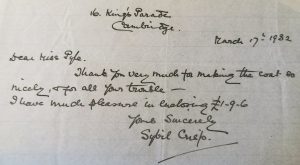 16. King's Parade
Cambridge.
March 17th 1932
Dear Miss Pye.
Thank you very much for making the coat so
nicely, & for all your trouble —
I have much pleasure in enclosing £1-9-6
Yours Sincerely
Sybil Cusp.